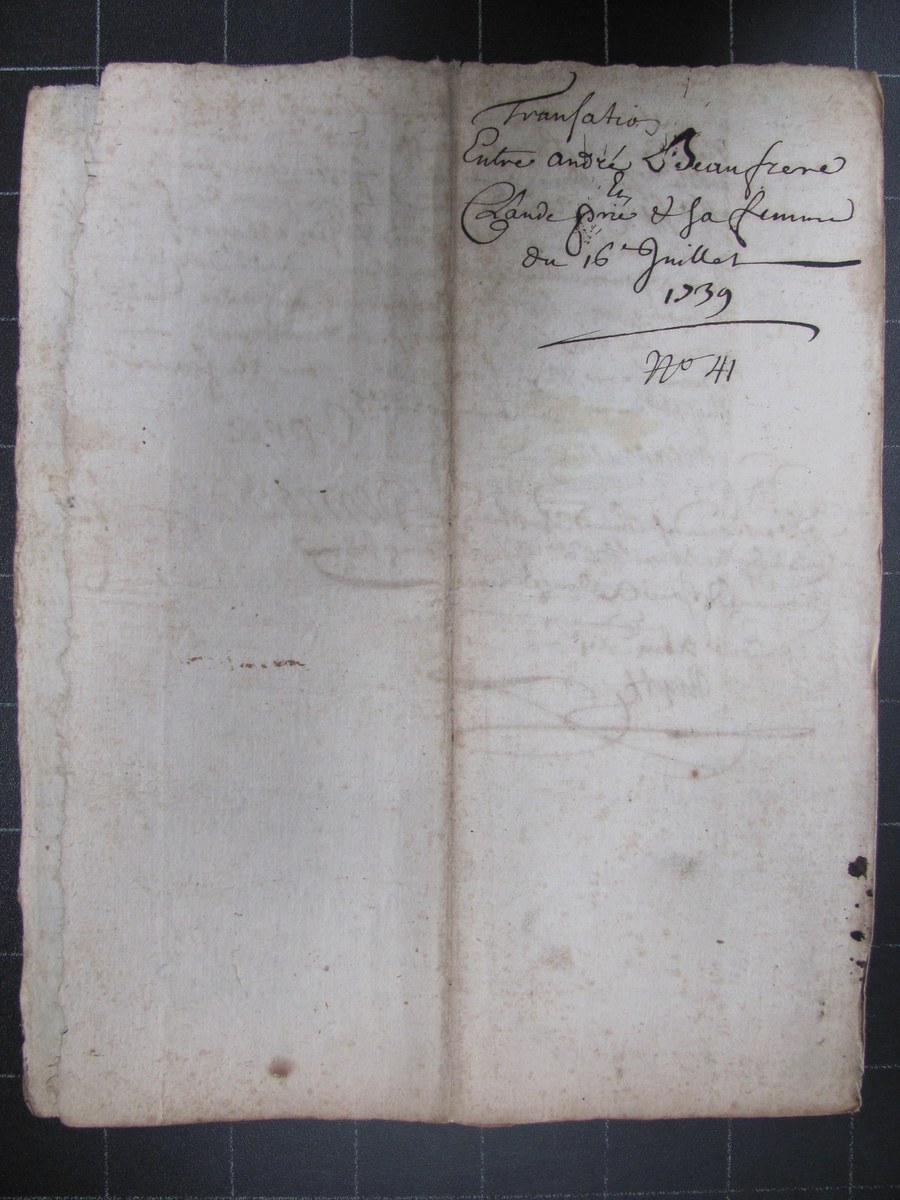 Transatiõn
Entre andré Beaufrere
Et
Claude Brié & sa femme
du 16e Juillet
1739
No 41